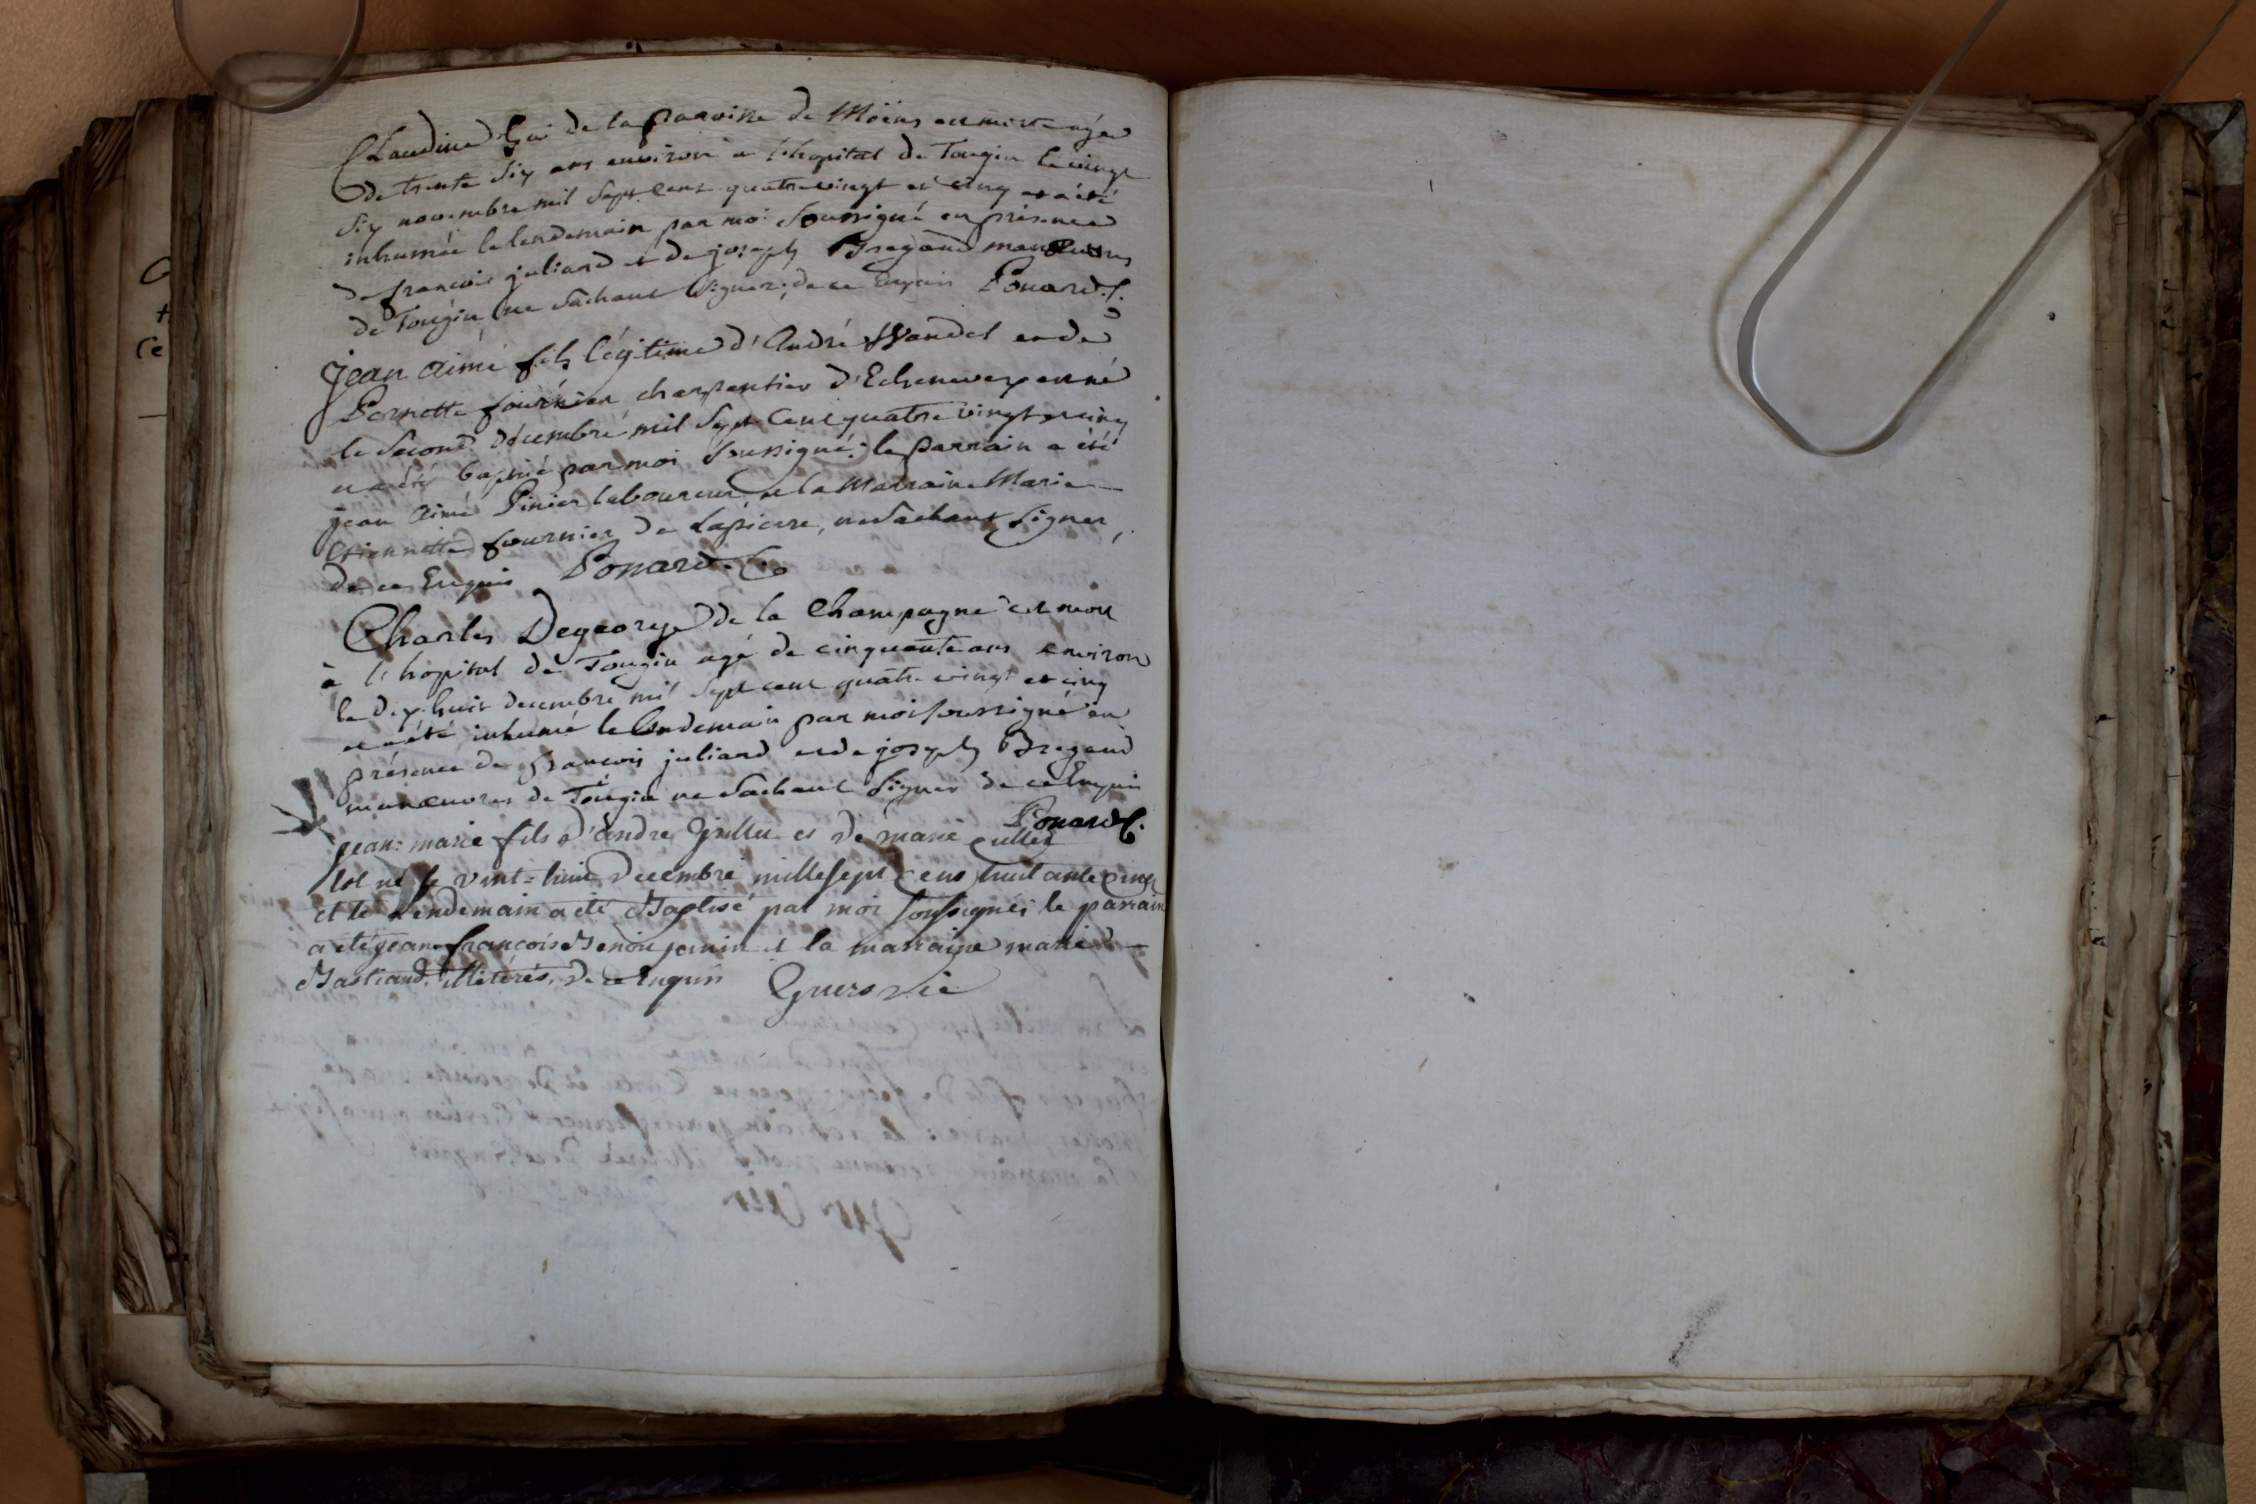 Claudine Gai de la paroisse de Möins est morte agée
de trente six ans environ a l'hopital de Tougin le vingt
six novembre mil sept cent quatre vingt et cinq et a été
inhumée le lendemain par moi soussigné en présence
de françois juliard et de joseph Bregand manœuvres
de Tougin ne sachant signer, de ce Enquis Ponard C.
jean aimé fils légitime d'André Wandel et de
Pernette fournier charpentier d'Echenevex est né
le second décembre mil sept cent quatre vingt et cinq
et a été baptisé par moi soussigné; le parrain a été
jean aimé Pinier laboureur, et la Marraine Marie
Etiennette fournier de Lapierre, ne sachant signer,
de ce Enquis Ponard C.
Charles Degeorge de la Champagne est mort
à l'hopital de Tougin agé de cinquante ans environ
le dix huit decembre mil sept cent quatre vingt et cinq
et a été inhumé le lendemain par moi soussigné en
présence de françois juliard et de joseph Bregand
manœuvres de Tougin ne sachant signer de ce Enquis
Ponard C.
jean: marie fils d'andre et de marie
est né le vint=huit decembre mille sept cens huitante cinq
et le lendemain a eté Baptisé par moi soussigné; le parrain
a eté jean françois Benoi et la marraine marie
Bastiand, illiterés, de ce Enquis